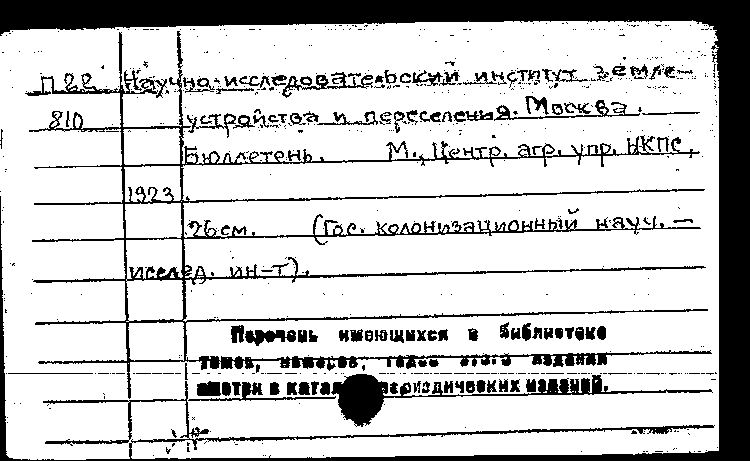 П22 Научно-исследовательский институт земле-
810 устройства и переселения. Москва.
Бюллетень. М., Центр. агр. упр. НКПС,
1923.
26см. (Гос. колонизационный науч.-
исслед. ин-т).
Перечень имеющихся в библиотеке
томов, номеров, годов этого издания
смотри в катал периодических изданий.